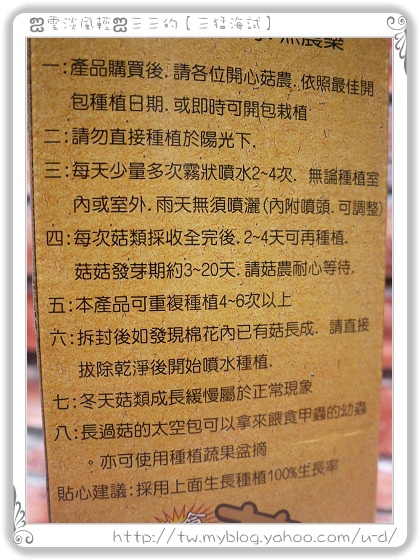 雲淡風輕 三三的【三猛海試】
無農藥
一:產品購買後.請各位開心菇農.依照最佳開
包種植日期.或即時可開包栽植
二:請勿直接種植於陽光下.
三:每天少量多次霧狀噴水2~4次. 無論種植室
內或室外.雨天無須噴灑(內附噴頭.可調整)
四:每次菇類採收全完後.2~4天可再種植.
菇菇發芽期約3~20天.請菇農耐心等待.
五:本產品可重複種植4~6次以上
六:拆封後如發現棉花內已有菇長成. 請直接
拔除乾淨後開始噴水種植.
七:冬天菇類成長緩慢屬於正常現象
八:長過菇的太空包可以拿來餵食甲蟲的幼蟲
。亦可使用種植蔬果盆摘
貼心建議:採用上面生長種植100%生長率
http://tw.myblog.yahoo.com/u-d/